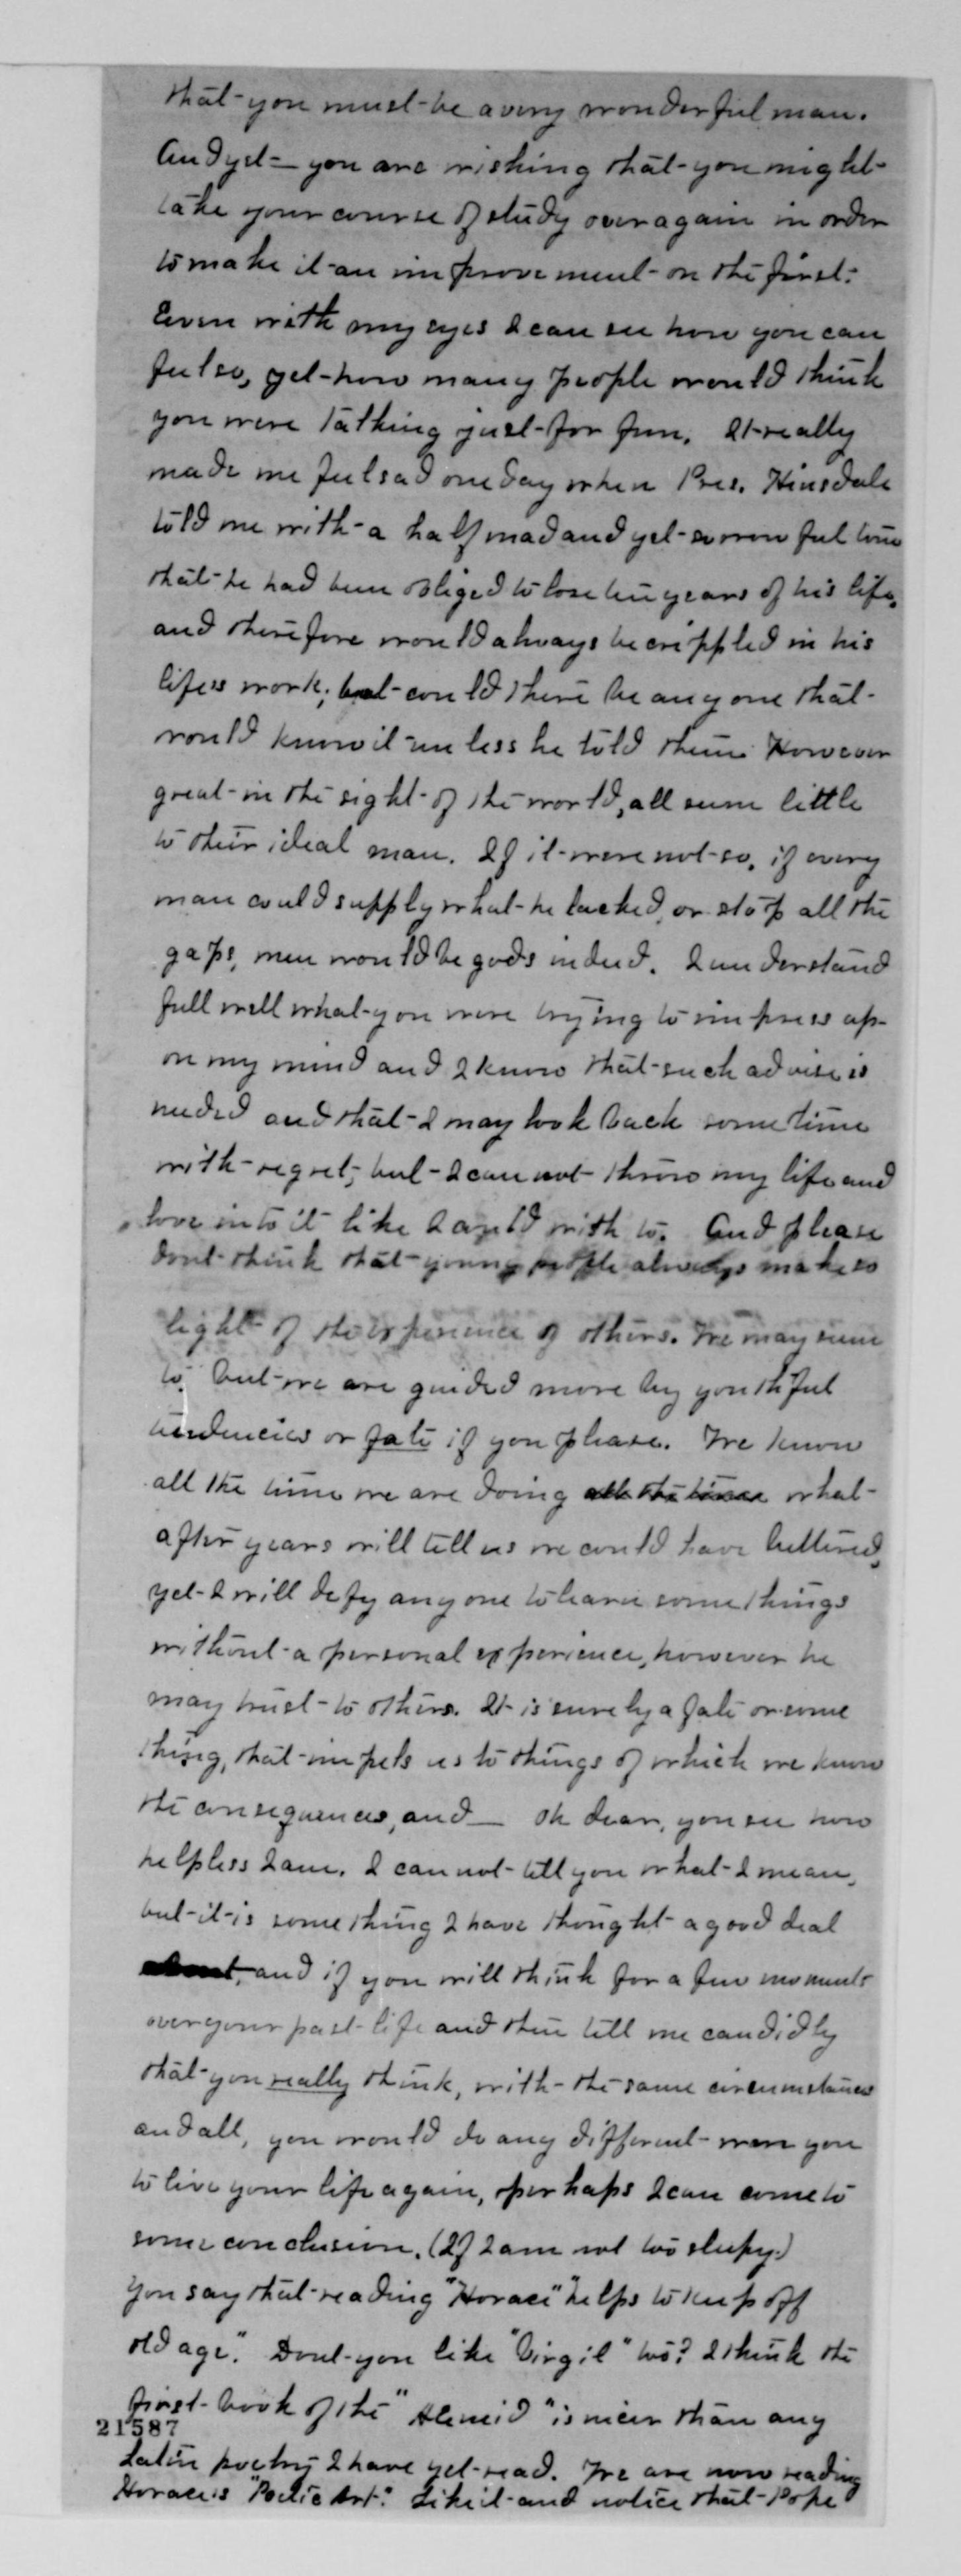 that you must be a very wonderful man.
And yet — you are wishing that you might
take your course of study over again in order
to make it an improvement on the first.
Even with my eyes I can see how you can
feel so, yet how many people would think
you were talking just for fun. It really
made me feel sad one day when Pres. Hinsdale
told me with a half mad and yet sorrowful tone
that he had been obliged to lose ten years of his life,
and therefore would always be crippled in his
life's work; but could there be anyone that
would know it unless he told them. However
great in the sight of the world, all seem little
to their ideal man. If it were not so, if every
man could supply what he lacked, or stop all the
gaps, men would be gods indeed. I understand
full well what you were trying to impress up-
on my mind and I know that such advise is
needed and that I may look back some time
with regret, but I can not throw my life and
love into it like I could wish to. And please
dont think that young people always make so
light of the experience of others. We may seem
to, but we are guided more by youthful
tendencies or fate if you please. We know
all the time we are doing all the time what
after years will tell us we could have bettered,
yet I will defy anyone to learn some things
without a personal experience, however he
may trust to others. It is surely a fate or some
thing, that impels us to things of which we know
the consequences, and — Oh dear, you see how
helpless I am. I can not tell you what I mean,
but it is something I have thought a good deal
about, and if you will think for a few moments
over your past life and then tell me candidly
that you really think, with the same circumstances
and all, you would do any different were you
to live your life again, perhaps I can come to
some conclusion. (If I am not too sleepy.)
You say that reading "Horace" "helps to keep off
old age." Dont you like "Virgil" too? I think the
first book of the "Aeneid" is nicer than any
21587
Latin poetry I have yet read. We are now reading
Horace's "Poetic Art." Like it and notice that Pope